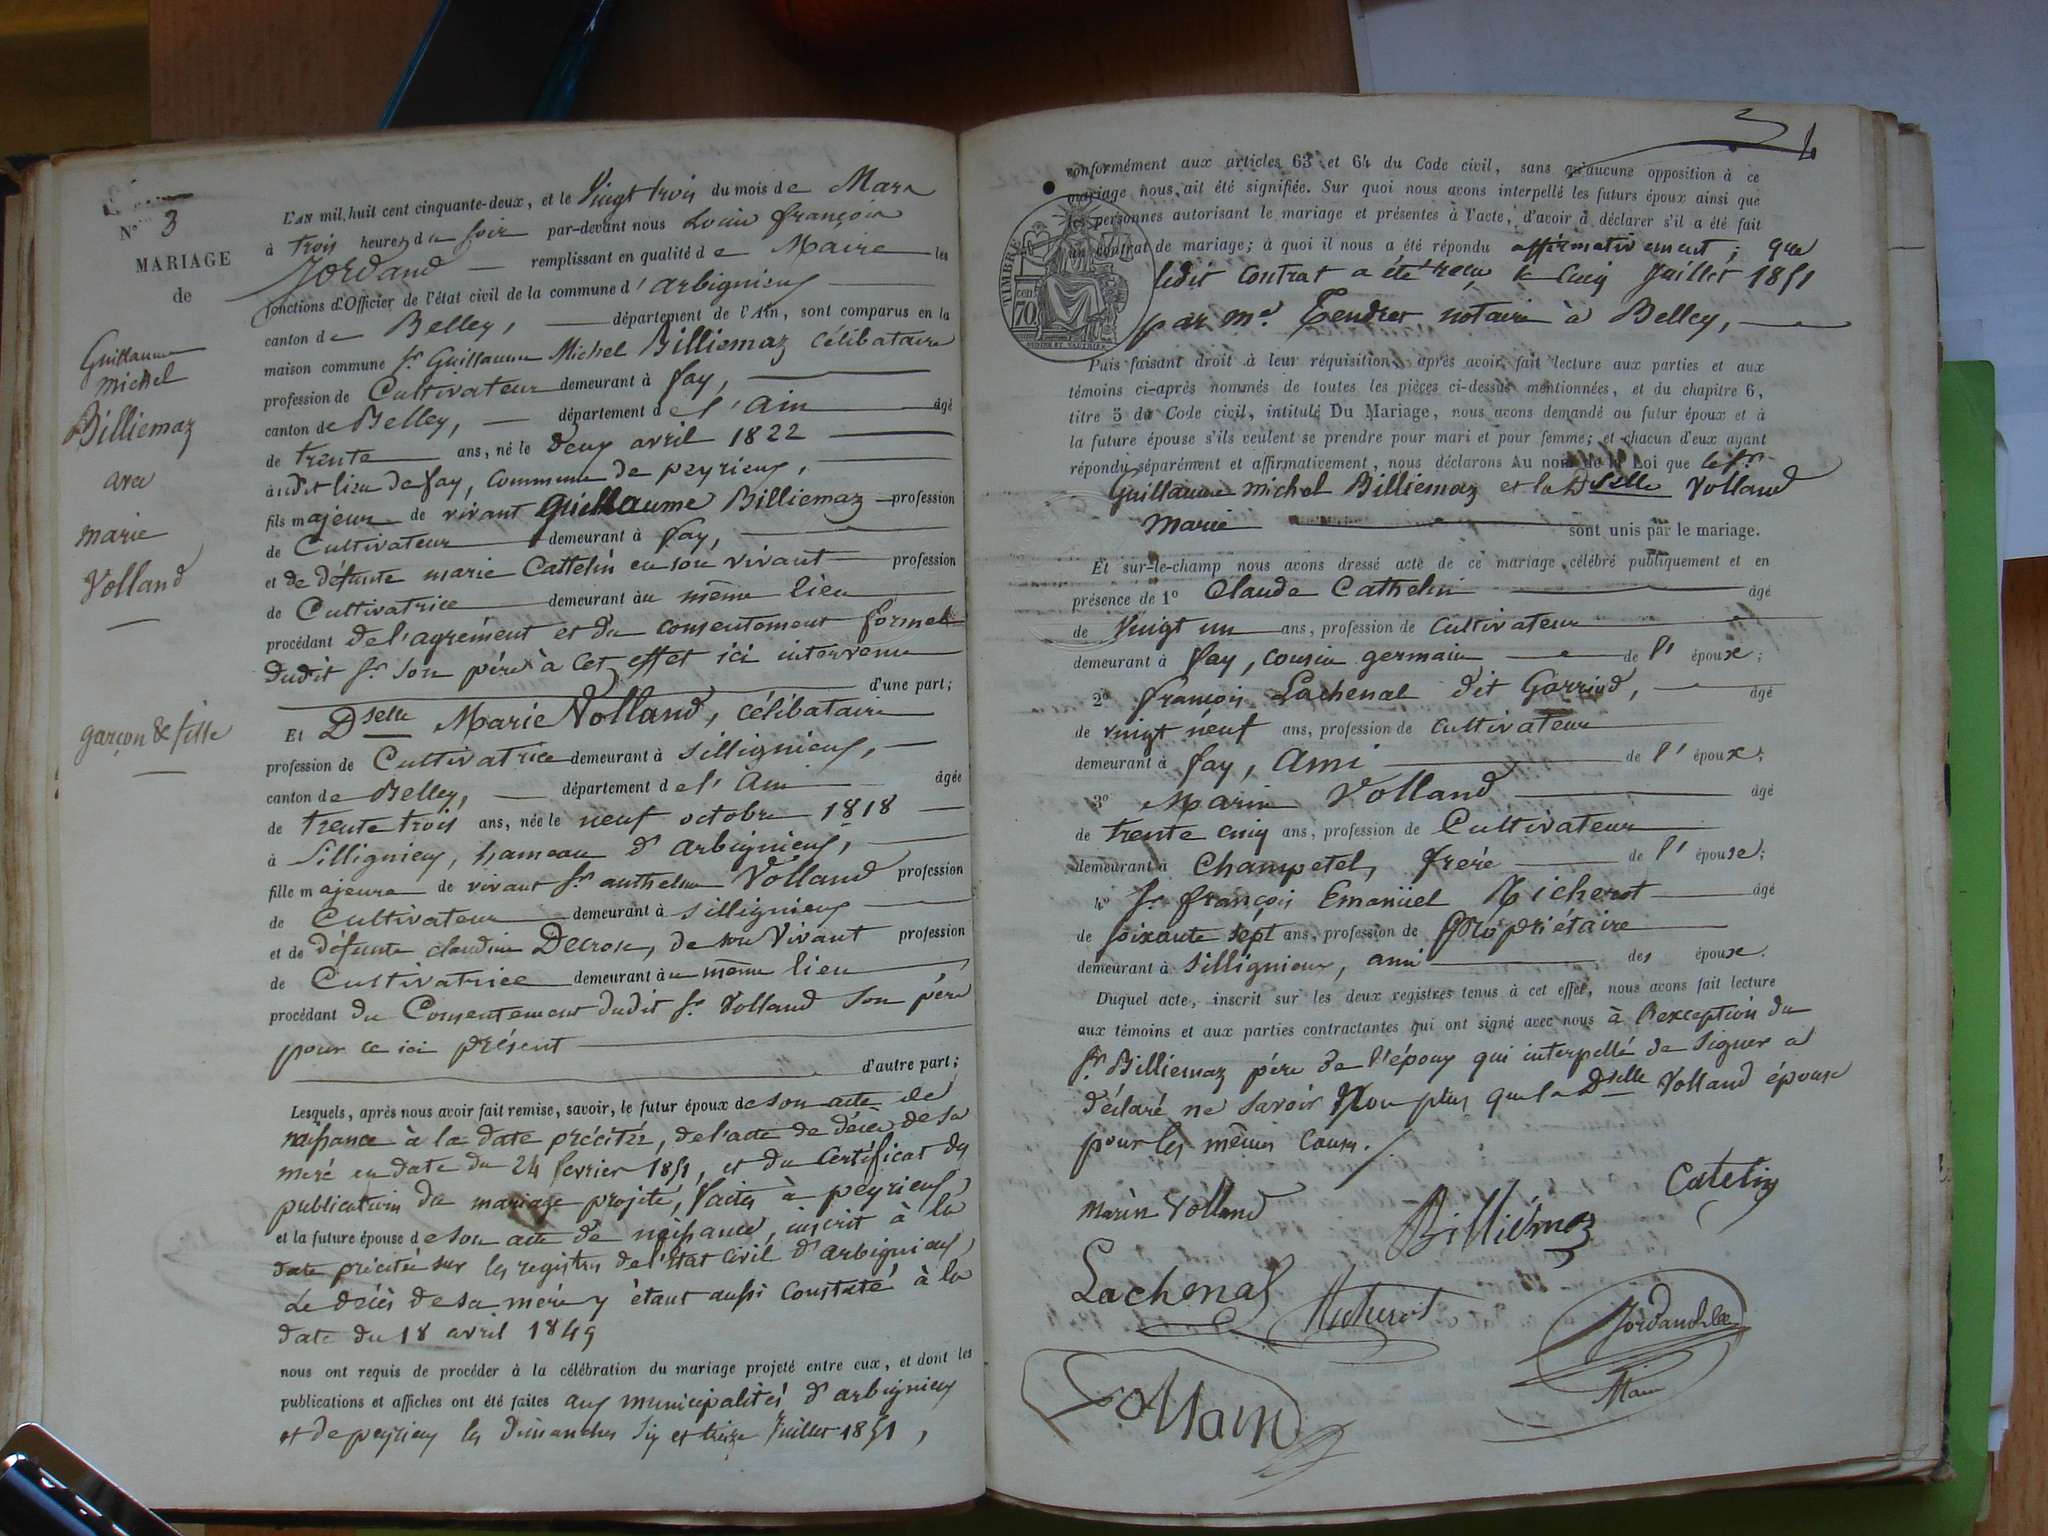 N° 3
MARIAGE
de
Guillaume
Michel
Billiemaz
avec
marie
Volland
garçon & fille
L'AN mil huit cent cinquante-deux, et le Vingt trois du mois de Mars
à trois heures du soir par-devant nous Louis françois
Jordand remplissant en qualité de Maire les
fonctions d'Officier de l'état civil de la commune d'arbignieu
canton de Belley, département de l'Ain, sont comparus en la
maison commune Sr Guillaume Michel Billiemaz célibataire
profession de Cultivateur demeurant à fay,
canton de Belley, département de l'ain âgé
de trente ans, né le deux avril 1822
audit lieu de fay, commune de peyrieux,
fils majeur de vivant Guillaume Billiemaz profession
de Cultivateur demeurant à fay,
et de défunte marie Cattelin en son vivant profession
de Cultivatrice demeurant au même lieu
procédant de l'agrément et du consentement formel
dudit Sr son père à cet effet ici intervenu
d'une part;
Et Dselle Marie Volland, célibataire
profession de Cultivatrice demeurant à Sillignieux,
canton de Belley, département de l'ain âgée
de trente trois ans, née le neuf octobre 1818
à Sillignieux, hameau d'arbignieux,
fille majeure de vivant Sr anthelme Volland profession
de Cultivateur demeurant à Sillignieux
et de défunte claudine Decrose, de son Vivant profession
de Cultivatrice demeurant au même lieu
procédant du Consentement dudit Sr Volland Son père
pour ce ici présent
d'autre part;
Lesquels, après nous avoir fait remise, savoir, le futur époux de son acte de
naissance à la date précitée, de l'acte de décès de sa
meré en date du 24 fevrier 1851, et du Certificat des
publications du mariage projeté, faites à peyrieux,
et la future épouse de son acte de naissance, inscrit à la
date précitée sur les registres de l'état civil d'arbignieux,
Le décès de sa mére y étant aussi Constaté à la
date du 18 avril 1849
nous ont requis de procéder à la célébration du mariage projeté entre eux, et dont les
publications et affiches ont été faites aux municipalités d'arbignieux
et de peyrieux les Dimanches Six et treize Juillet 1851,
conformément aux articles 63 et 64 du Code civil, sans qu'aucune opposition à ce
mariage nous ait été signifiée. Sur quoi nous avons interpellé les futurs époux ainsi que
les personnes autorisant le mariage et présentes à l'acte, d'avoir à déclarer s'il a été fait
un contrat de mariage; à quoi il nous a été répondu affirmativement; que
ledit contrat a été reçu le Cinq Juillet 1851
par me Tendret notaire à Belley,
TIMBRE
cen 70
Puis faisant droit à leur réquisition, après avoir fait lecture aux parties et aux
témoins ci-après nommés de toutes les pièces ci-dessus mentionnées, et du chapitre 6,
titre 5 du Code civil, intitulé Du Mariage, nous avons demandé au futur époux et à
la future épouse s'ils veulent se prendre pour mari et pour femme; et chacun d'eux ayant
répondu séparément et affirmativement, nous déclarons Au nom de la Loi que le Sr
Guillaume michel Billiemaz et la Dselle Volland
Marie sont unis par le mariage.
Et sur-le-champ nous avons dressé acte de ce mariage célébré publiquement et en
présence de 1° Claude Cathelin âgé
de vingt un ans, profession de Cultivateur
demeurant à fay, cousin germain de l'époux;
2° françois Lachenal dit Garriod, âgé
de vingt neuf ans, profession de cultivateur
demeurant à fay, Ami de l'époux;
3° Marin Volland âgé
de trente cinq ans, profession de Cultivateur
demeurant à Champetel, freré de l'épouse;
4° Sr françois Emanüel Micherot âgé
de soixante sept ans, profession de Propriétaire
demeurant à Sillignieux, ami des époux.
Duquel acte, inscrit sur les deux registres tenus à cet effet, nous avons fait lecture
aux témoins et aux parties contractantes qui ont signé avec nous à l'exception du
Sr Billiemaz pére de l'époux qui interpellé de Signer a
déclaré ne Savoir Non plus que la Dselle Volland épouse
pour les mêmes Causes.
Catelin
Marin Volland
Billiémaz
Lachenal
Micherot
Jordand
Maire
Vollain